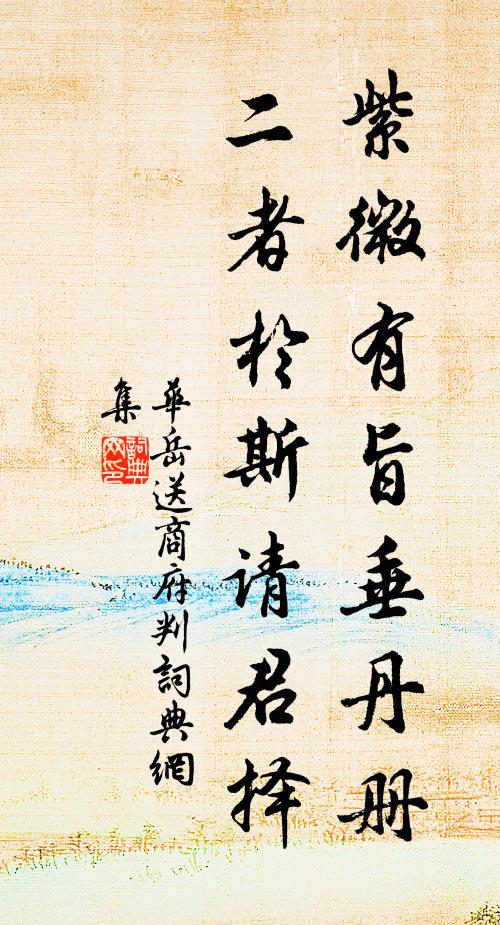 紫微有旨垂丹册
二者於斯请君择
華岳送商府判詞典網
集
詞典網印